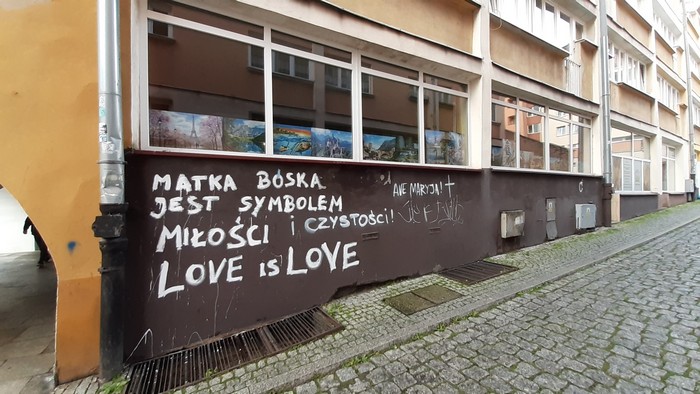 MATKA BOSKA
JEST SYMBOLEM
MIŁOŚCI i CZYSTOŚCI!
LOVE is LOVE
AVE MARYJA! †